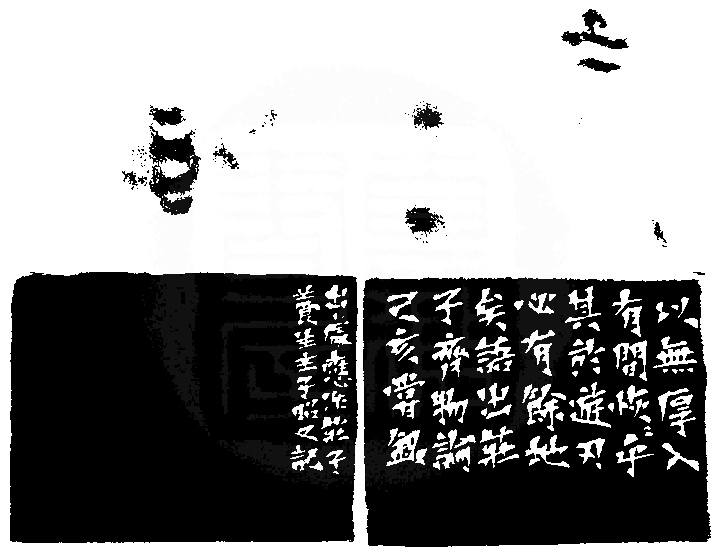 以無厚入
有間恢〻乎
其於遊刃
必有餘地
矣語出莊
子齊物論
己亥
出處應作莊子
養生主子昭又記